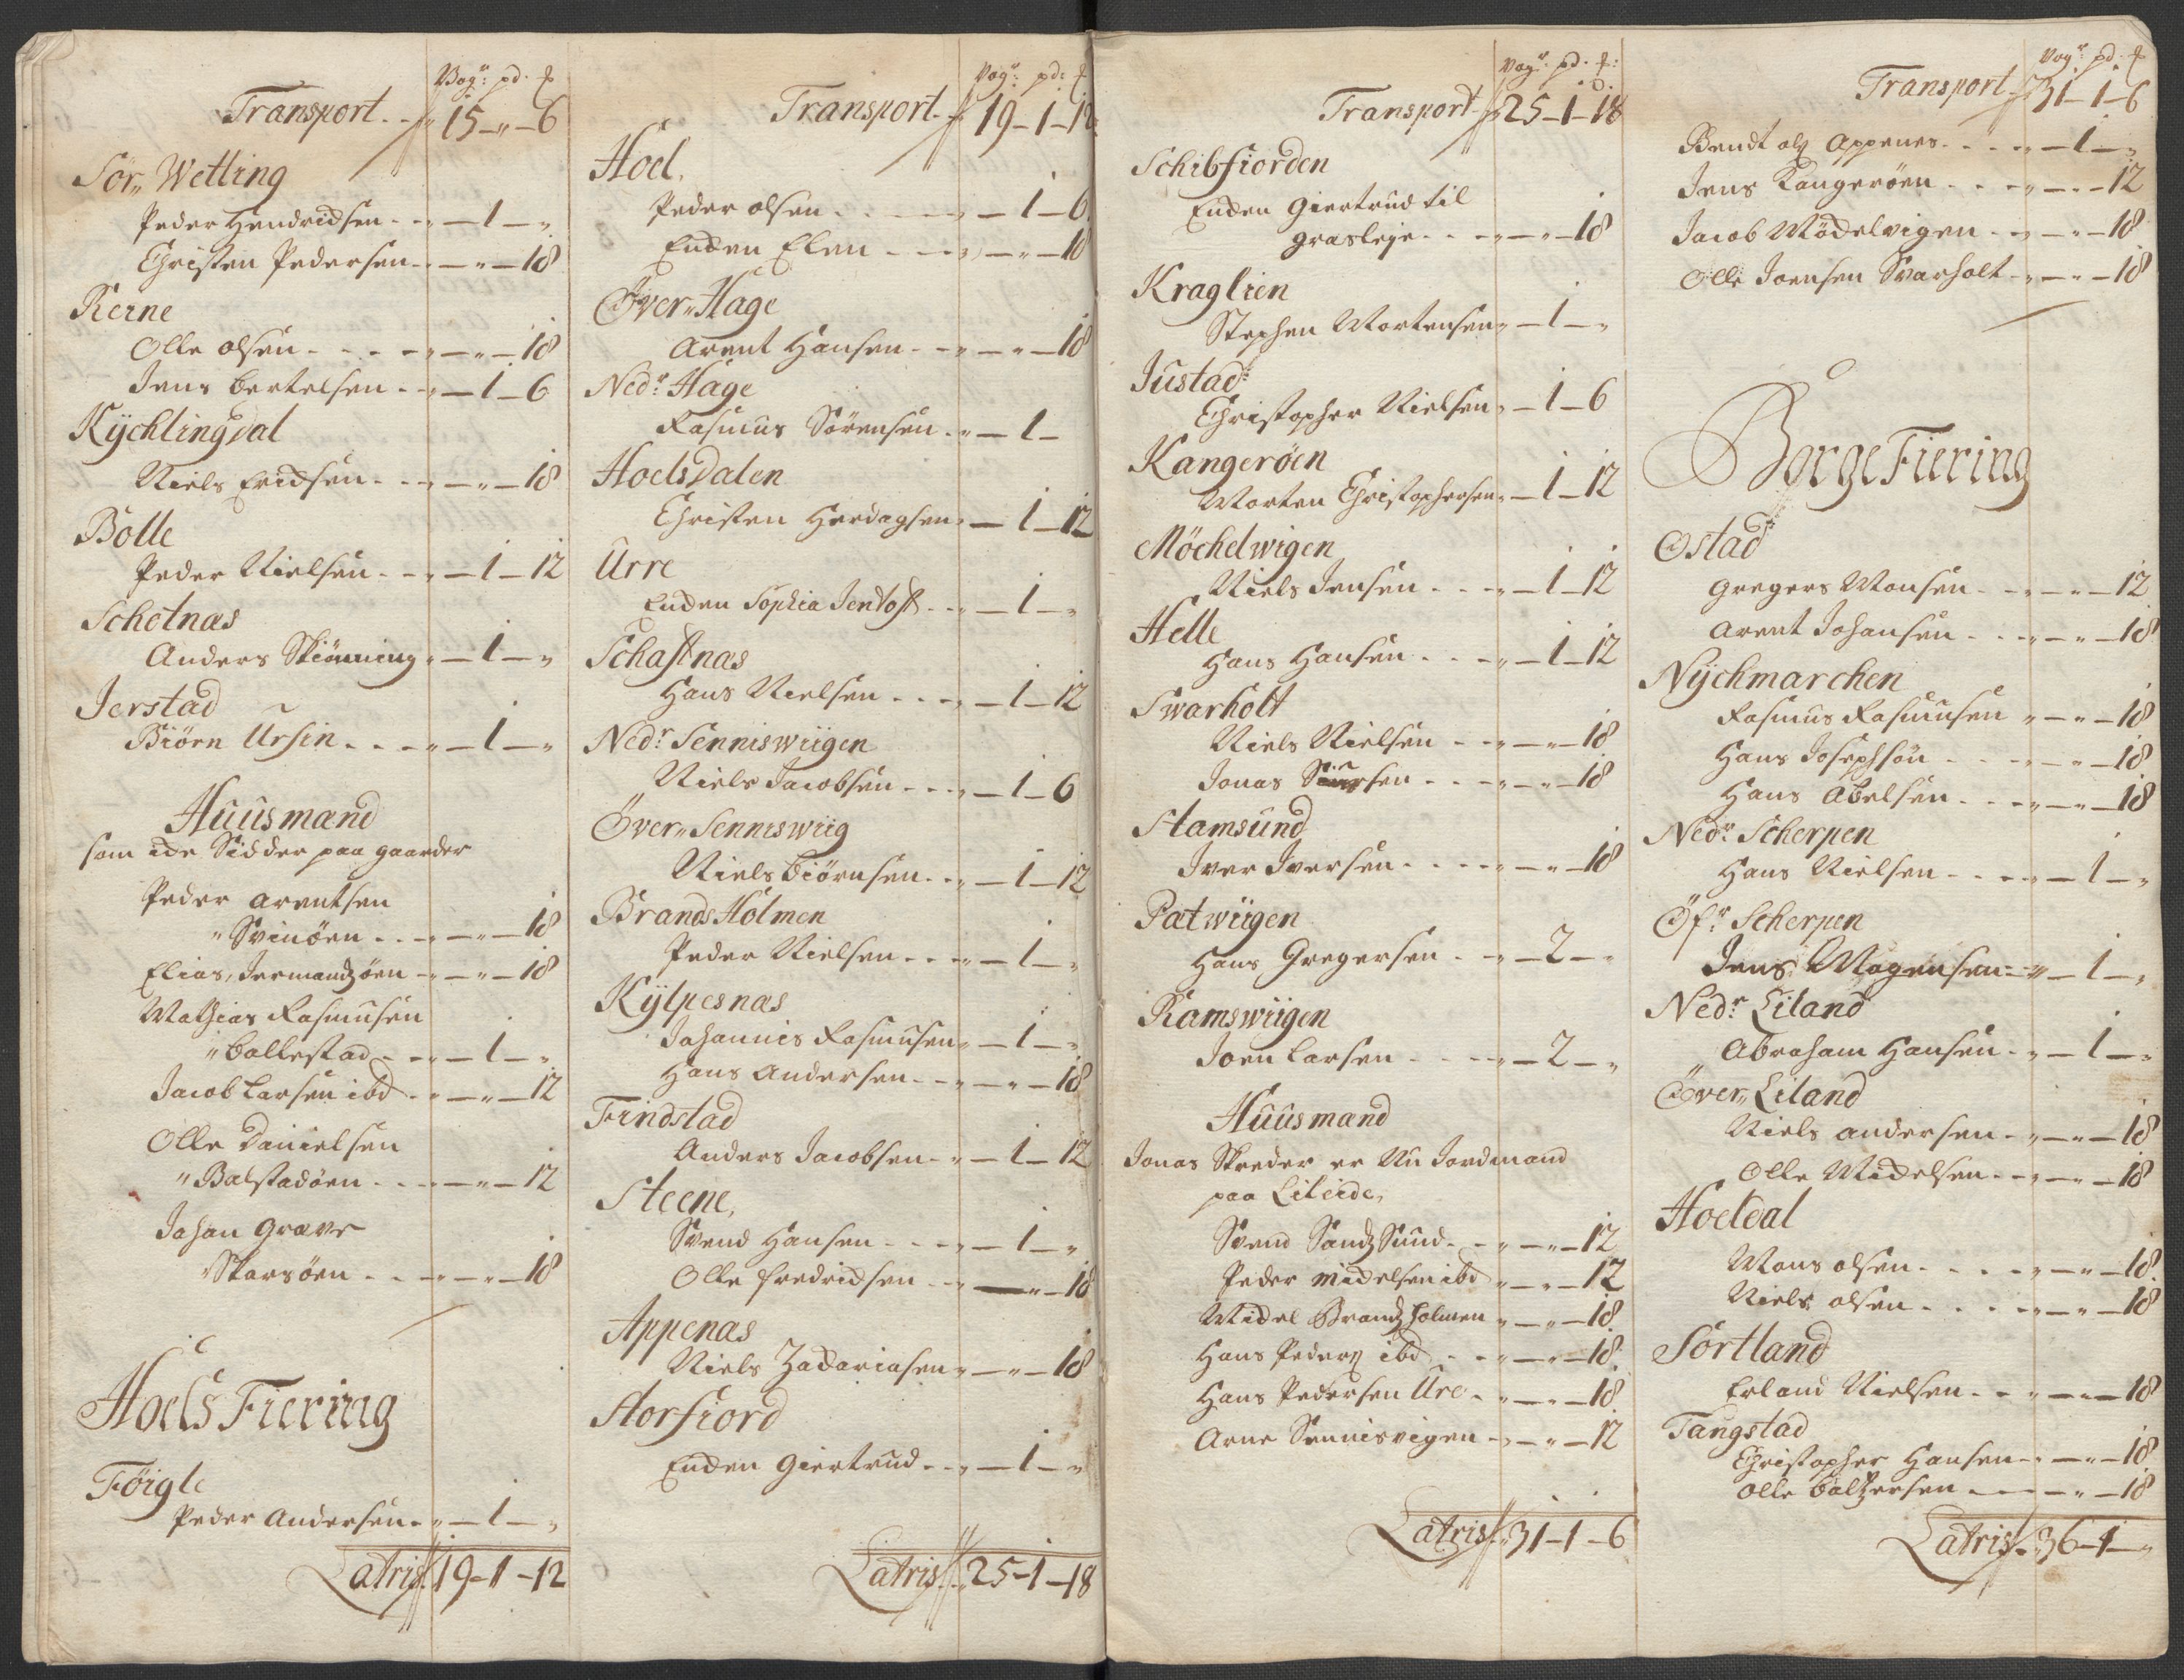 Vogr: pd. ℔
Transport. - 15 - " - 6
Sör„ Wetting
Peder Hendrichsen - " - 1 - "
Christen Pedersen - " - " - 18
Rerne
Olle olsen - - - " - " - 18
Jens bertelsen - - " - 1 - 6
Kÿchlingdal
Niels Erichsen - - " - " - 18
Bolle
Peder Nielsen - - " - 1 - 12
Schotnas
Anders Skiönning " - 1 - "
Jerstad
Biörn Ursin - - - " - 1 - "
Huusmand
som iche Sidder paa gaarder
Peder arentsen
" Svinöen - - - " - " - 18
Elias, Jermandzöen - " - " - 18
Mathias Rasmusen
" ballestad - - " - 1 - "
Jacob Larsen ibd - " - " - 12
Olle Danielsen
" Balstadöen - - - " - " - 12
Johan Grave
" Skarsöen - - - " - " - 18
Hoels Fiering
Föigle
Peder Andersen - " - 1 - "
Latris 19 - 1 - 12
Vogr: pd: ℔
Transport - 19 - 1 - 12
Hoel,
Peder olsen - - - " - 1 - 6
Enchen Elen - - - " - " - 18
Över„ Hage
Arent Hansen - - " - " - 18
Nedr Hage
Rasmus Sörensen - " - 1 -
Hoelsdalen
Christen Herdagsen " - 1 - 12
Urre
Enchen Sophia Jentoft - " - 1 - "
Schaftnas
Hans Nielsen - - - " - 1 - 12
Nedr Senniswiigen
Niels Jacobsen - - " - 1 - 6
Över„ Senniswiig
Niels Biörnsen - - " - 1 - 12
Brands Holmen
Peder Nielsen - - " - 1 - "
Kÿlpesnas
Johannis Rasmusen " - 1 - "
Hans Andersen - - " - " - 18
Findstad
Anders Jacobsen - " - 1 - 12
Steene,
Svend Hansen - - " - 1 - "
Olle fredrichsen - " - " - 18
Appenas
Niels Zachariasen " - " - 18
Storfiord
Enchen Giertrud - - " - 1 - "
Latris 25 - 1 - 18
Vogr: pd. ℔:
Transport 25 - 1 - 18
Schibfiorden
Enchen Giertrud til
grasleje - - - " - " - 18
Kraglien
Stephen Mortensen " - 1 - "
Justad:
Christopher Nielsen " - 1 - 6
Kangeröen
Morten Christophersen " - 1 - 12
Möchelwigen
Niels Jensen - - - " - 1 - 12
Helle
Hans Hansen - - - " - 1 - 12
Swarholt
Niels Nielsen - - " - " - 18
Jonas - - - " - " - 18
Stamsund
Iver Iversen - - - " - " - 18
Patwiigen
Hans Gregersen - " - 2 - "
Ramswiigen
Joen Larsen - - - " - 2 - "
Huusmand
Jonas Skreder er Nu Jordmand
paa Lileide,
Svend Sandz Sund - " - " - 12
Peder Michelsen ibd " - " - 12
Michel Brandzholmen " - " - 18
Hans Peders ibd - - " - " - 18
Hans Pedersen Ure - " - " - 18
Arne Sennisvigen - " - " - 12
Latris 31 - 1 - 6
Vogr: pd. ℔
Transport 31 - 1 - 6
Bendt ols Appenes - - - " - 1 - "
Jens Kangeröen - - - " - " - 12
Jacob Möchelvigen - " - " - 18
Olle Joensen Svarholt - " - " - 18
Borge Fiering
Ostad
Gregers Monsen - - " - " - 12
Arent Johansen - - " - " - 18
Nÿchmarchen
Rasmus Rasmusen " - " - 18
Hans Josephson - - " - " - 18
Hans Abelsen - - " - " - 18
Nedr Scherpen
Hans Nielsen - - " - 1 - "
Öfr Scherpen
Jens Mogensen - " - 1 - "
Nedr Liland
Abraham Hansen - " - 1 - "
Över„ Liland
Niels andersen - " - " - 18
Olle Michelsen - " - " - 18
Hoeldal
Mons olsen - - - " - " - 18
Niels olsen - - - " - " - 18
Sortland
Erland Nielsen - - " - " - 18
Tangstad
Christopher Hansen - " - " - 18
Olle baltzersen - - " - " - 18
Latris - 36 - 1 - "